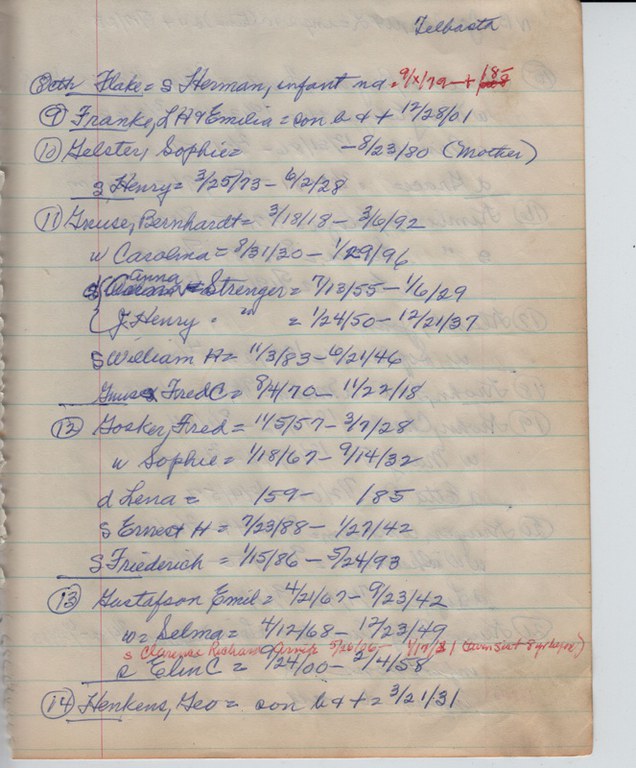 8cth Flake = s Herman, infant nd. 9/x/79 - +
⑨ Franke, L A & Emilia = son b & + 12/28/01
⑩ Gelster, Sophie = - 8/23/80 (Mother)
s Henry = 3/25/73 - 6/2/28
⑪ Gruse, Bernhardt = 3/18/18 - 3/6/92
w Carolina = 8/31/20 - 1/29/96
Anna
Strenger = 7/13/55 - 1/6/29
J. Henry " = 1/24/50 - 12/21/37
s William H = 11/3/83 - 6/21/46
Gruse Fred C = 8/4/70 - 11/22/18
⑫ Gosker, Fred = 11/5/57 - 3/7/28
w Sophie = 1/18/67 - 9/14/32
d Lena = /59 - /85
s Ernest H = 7/23/88 - 1/27/42
s Friederich = 1/15/86 - 5/24/93
⑬ Gustafson Emil = 4/21/67 - 9/23/42
w = Selma = 4/12/68 - 12/23/49
s Clarence Richard
Elin C = 9/24/00 - 2/4/58
⑭ Henkens, Geo = son b & + = 3/21/31